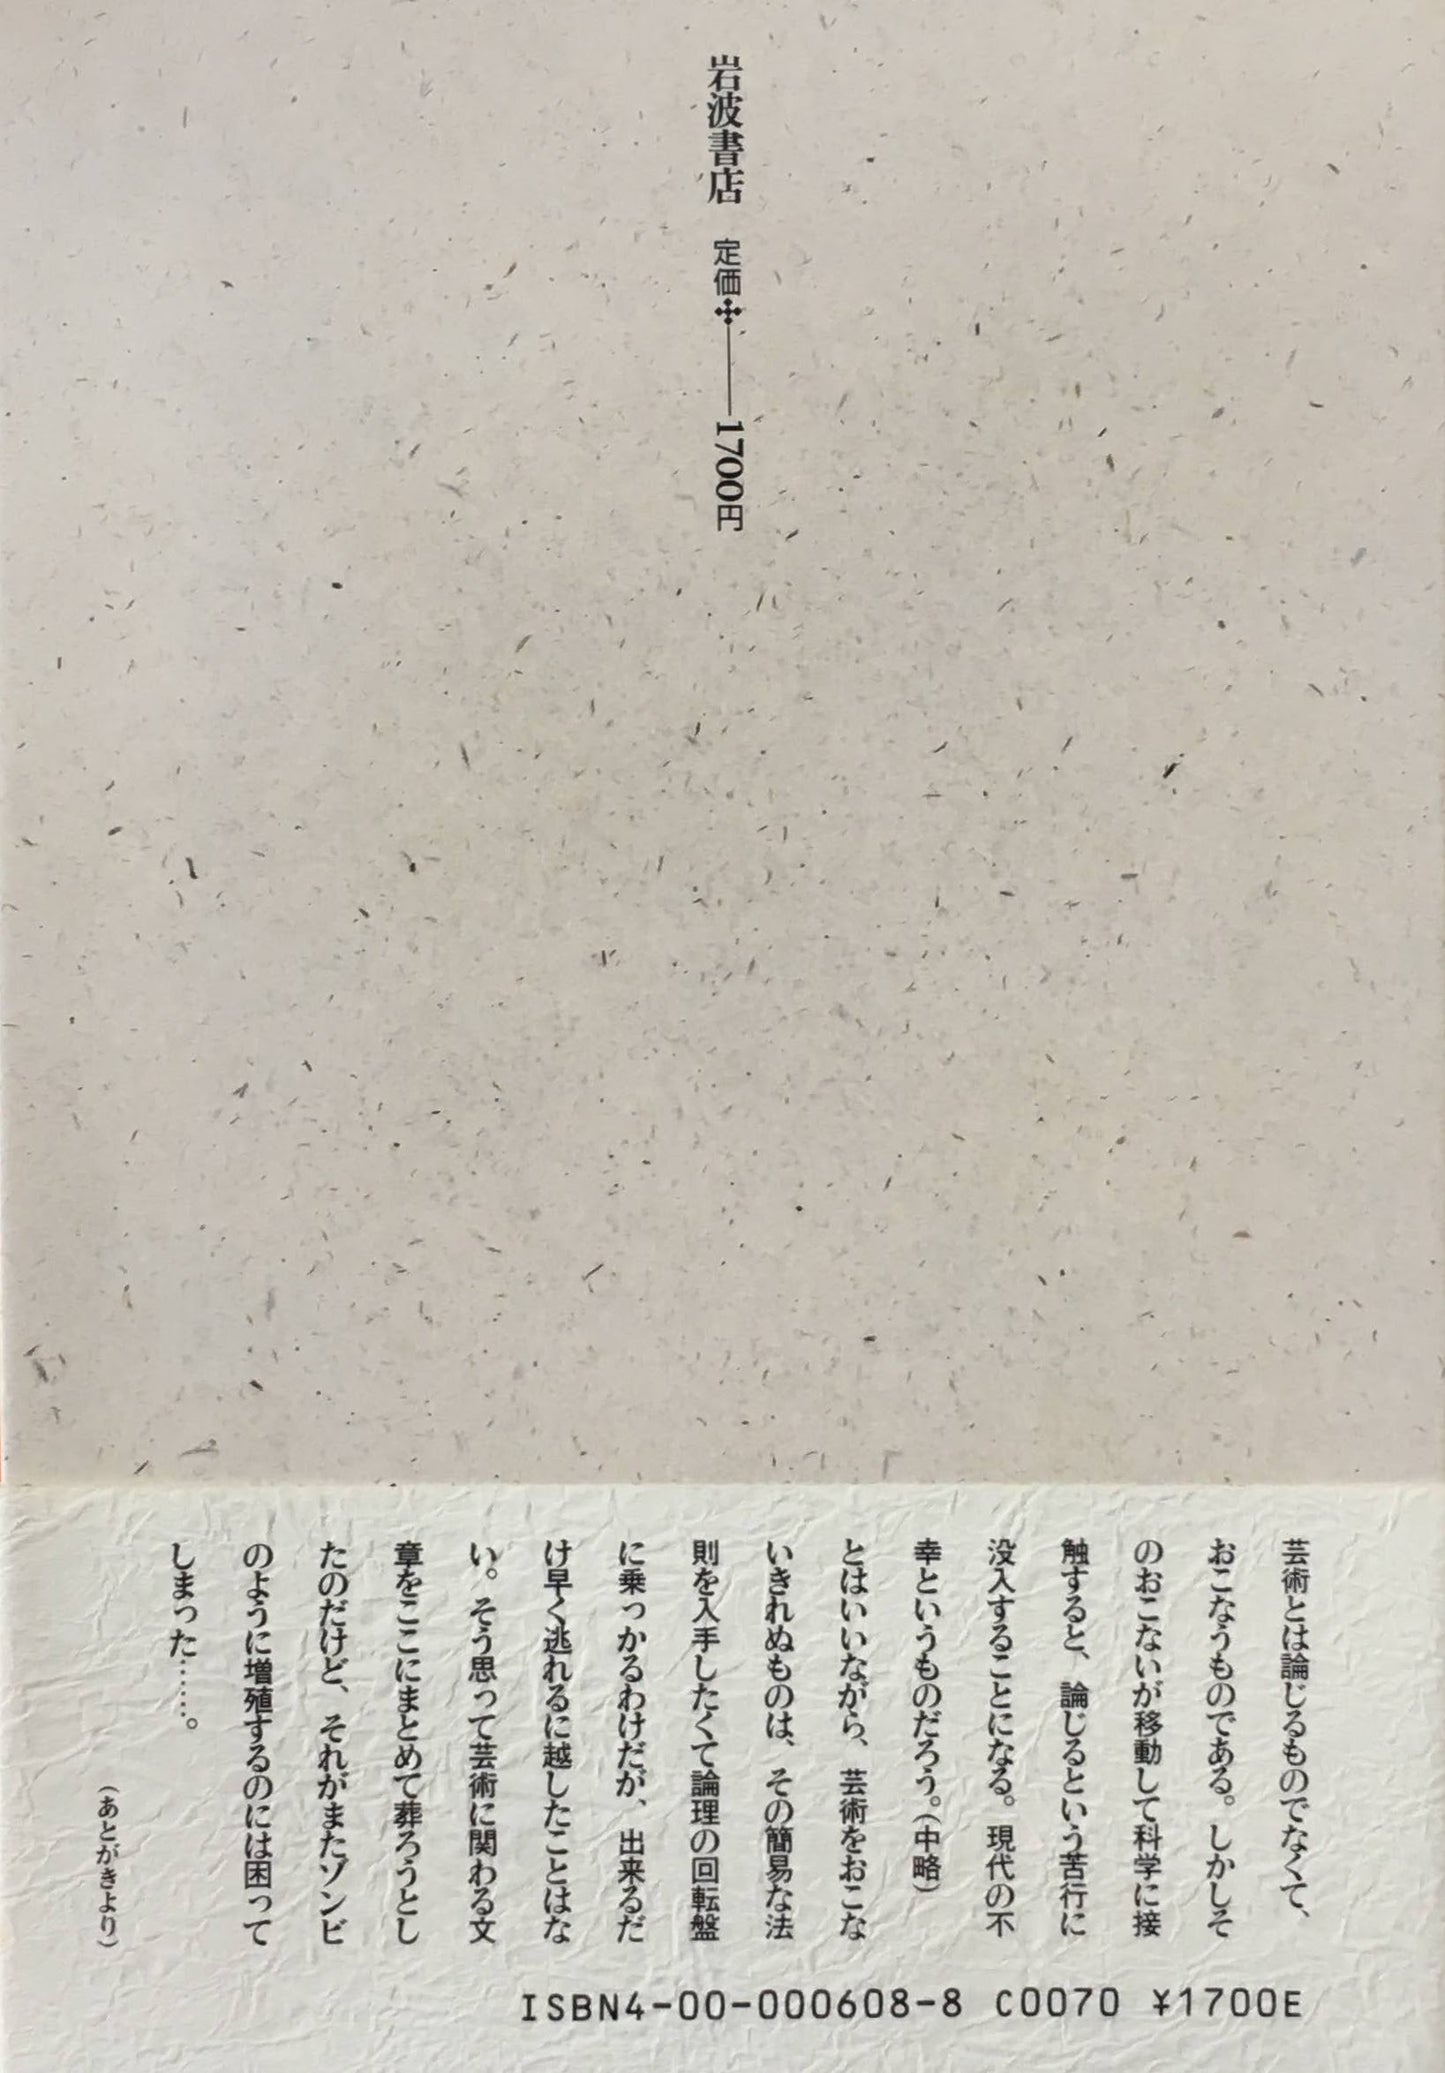 岩波書店 定価✣——1700円
芸術とは論じるものでなくて、
おこなうものである。しかしそ
のおこないが移動して科学に接
触すると、論じるという苦行に
没入することになる。現代の不
幸というものだろう。(中略)
とはいいながら、芸術をおこな
いきれぬものは、その簡易な法
則を入手したくて論理の回転盤
に乗っかるわけだが、出来るだ
け早く逃れるに越したことはな
い。そう思って芸術に関わる文
章をここにまとめて葬ろうとし
たのだけど、それがまたゾンビ
のように増殖するのには困って
しまった……。
(あとがきより)
ISBN4-00-000608-8 C0070 ¥1700E